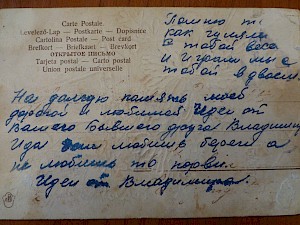 Carte Postale
Levelező-Lap — Postkarte — Dopisnice
Cartolina Postale — Post card
Brefkort — Briefkaart — Brevkort
ОТКРЫТОЕ ПИСЬМО
Tarjeta postal — Carto postal
Union postale universelle
Помню т
как гуляли
с тобой весе
и играли мы с
тобой вдвоем
На долгую память моей
дорогой и любимой Идеи от
Вашего бывшего друга Владимир
Ида если любишь береги а
не любишь то порви.
Идеи от Владимира.